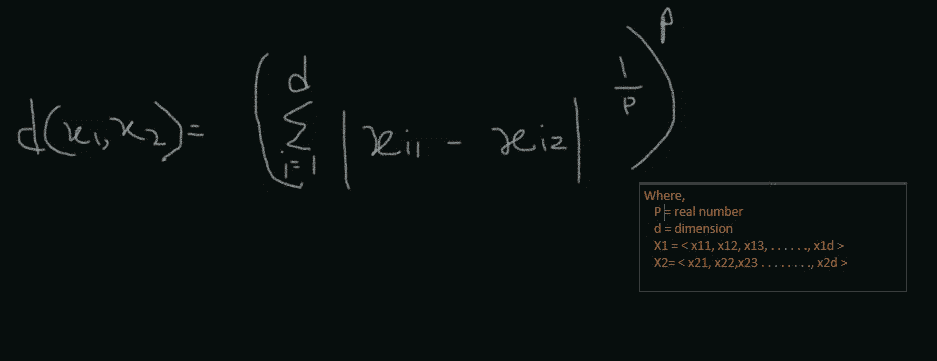 d(x₁,x₂)= (∑ᵢ₌₁ᵈ |xᵢ₁ - xᵢ₂|^(1/p))^p
Where,
P = real number
d = dimension
X1 = < x11, x12, x13, . . . . . ., x1d >
X2= < x21, x22,x23 . . . . . . . ., x2d >